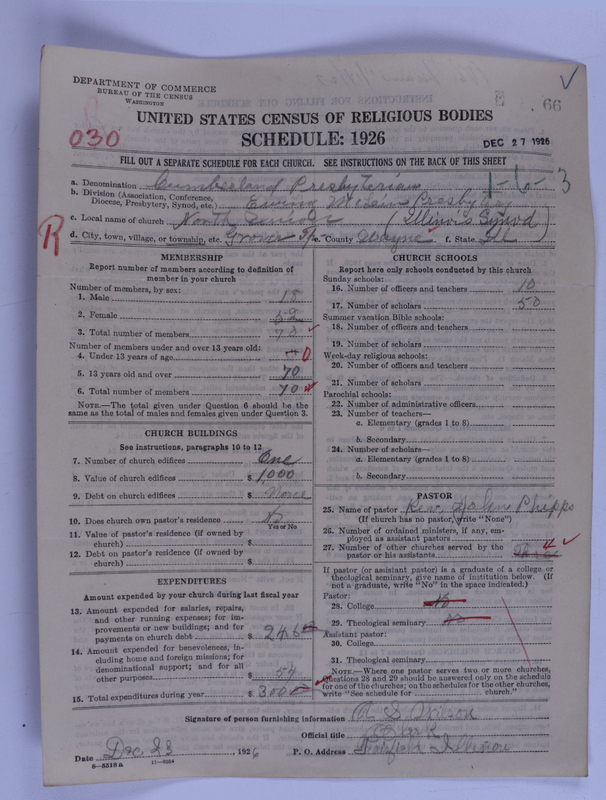 DEPARTMENT OF COMMERCE
BUREAU OF THE CENSUS
WASHINGTON
66
030
UNITED STATES CENSUS OF RELIGIOUS BODIES
SCHEDULE: 1926
DEC 27 1926
FILL OUT A SEPARATE SCHEDULE FOR EACH CHURCH. SEE INSTRUCTIONS ON THE BACK OF THIS SHEET
1-6-3
a. Denomination Cumberland Presbyterian
b. Division (Association, Conference, Diocese, Presbytery, Synod, etc.) Ewing McLean Presbytery
c. Local name of church North (Illinois Synod)
R
d. City, town, village, or township, etc. Grover e. County Wayne f. State Ill
MEMBERSHIP
Report number of members according to definition of
member in your church
Number of members, by sex:
1. Male 18
2. Female 52
3. Total number of members 70
Number of members under and over 13 years old:
4. Under 13 years of age 0
5. 13 years old and over 70
6. Total number of members 70
NOTE.—The total given under Question 6 should be the
same as the total of males and females given under Question 3.
CHURCH BUILDINGS
See instructions, paragraphs 10 to 12
7. Number of church edifices One
8. Value of church edifices $ 1000
9. Debt on church edifices $ None
10. Does church own pastor's residence No
Yes or No
11. Value of pastor's residence (if owned by
church) $
12. Debt on pastor's residence (if owned by
church) $
EXPENDITURES
Amount expended by your church during last fiscal year
13. Amount expended for salaries, repairs,
and other running expenses; for im-
provements or new buildings; and for
payments on church debt $ 246
14. Amount expended for benevolences, in-
cluding home and foreign missions; for
denominational support; and for all
other purposes $ 54
15. Total expenditures during year $ 300
CHURCH SCHOOLS
Report here only schools conducted by this church
Sunday schools:
16. Number of officers and teachers 10
17. Number of scholars 50
Summer vacation Bible schools:
18. Number of officers and teachers
19. Number of scholars
Week-day religious schools:
20. Number of officers and teachers
21. Number of scholars
Parochial schools:
22. Number of administrative officers
23. Number of teachers—
a. Elementary (grades 1 to 8)
b. Secondary
24. Number of scholars—
a. Elementary (grades 1 to 8)
b. Secondary
PASTOR
25. Name of pastor Rev. Halen Phipps
(If church has no pastor, write "None")
26. Number of ordained ministers, if any, em-
ployed as assistant pastors
27. Number of other churches served by the
pastor or his assistants Three
If pastor (or assistant pastor) is a graduate of a college or
theological seminary, give name of institution below. (If
not a graduate, write "No" in the space indicated.)
Pastor:
28. College No
29. Theological seminary No
Assistant pastor:
30. College
31. Theological seminary
NOTE.—Where one pastor serves two or more churches,
Questions 28 and 29 should be answered only on the schedule
for one of the churches; on the schedules for the other churches,
write "See schedule for church."
Signature of person furnishing information
Official title Clerk
Date Dec 23, 1926 P. O. Address Fairfield Illinois
8—5518a 11—9204